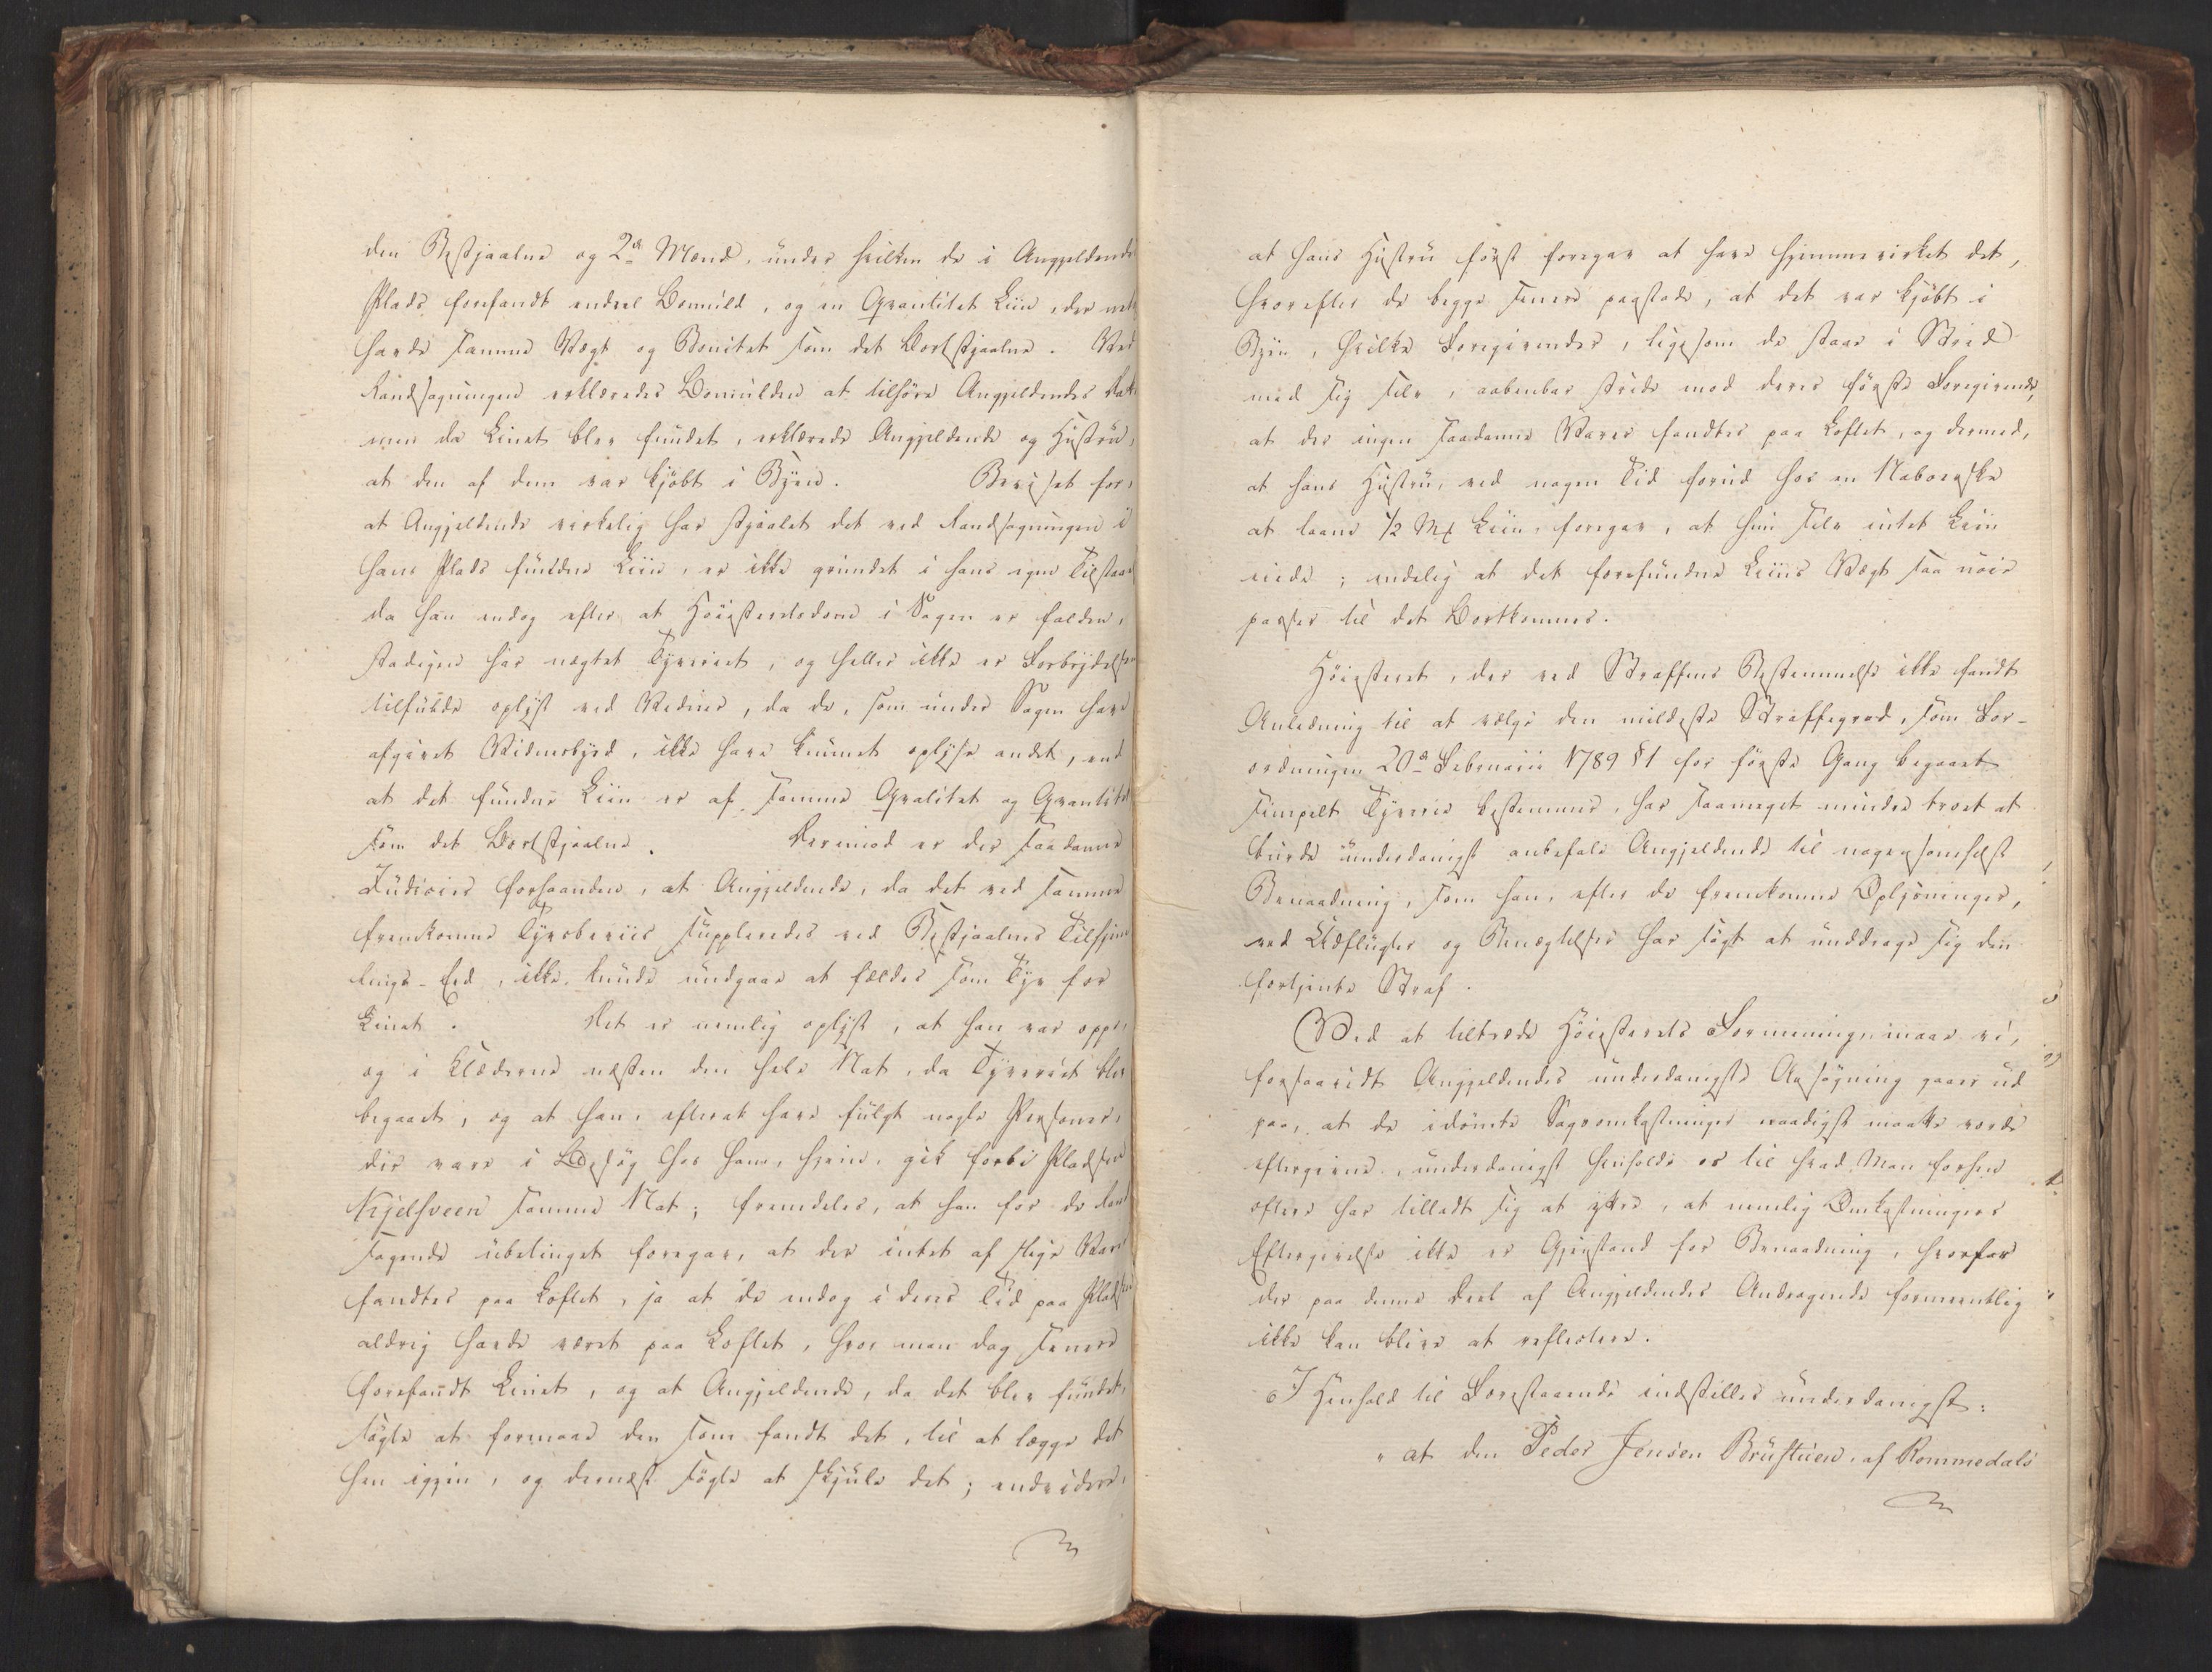 den Bestjaalne og 2de Mænd, under hvilken de i Angjeldendes
Plads forefandt endeel Bomuld, og en Qvantitet Liin, der net
havde samme Vægt og Bonitet som det Bortstjaalne. Ved
Randsagningen erklæredes Bomulden at tilhøre Angjeldendes
men da Linet blev fundet, erklærede Angjeldende og Hustru,
at den af dem var kjöbt i Byen. Beviset for,
at Angjeldende virkelig har stjaalet det ved Randsagningen i
hans Plads fundne Liin, er ikke grundet i hans egen Tilstaa
da han endog efter at Höiesteretsdom i Sagen er falden,
stadigen har nægtet Tyveriet, og heller ikke er Forbrydelsen
tilfulde oplyst ved Vidner, da de, som under Sagen have
afgivet Vidnesbyrd, ikke have kunnet oplyse andet, end
at det fundne Liin er af samme Qvalitet og Qvantitet
som det Bortstjaalne. Derimod er der saadanne
Judicier forhaanden, at Angjeldende, da det ved samme
fremkomne Tyvsbeviis suppleredes ved Bestjaalnes Tilhjem
lings-Eed, ikke kunde undgaae at fældes som Tyv for
Linet. Det er nemlig oplyst, at han var oppe,
og i Klæderne næsten den hele Nat, da Tyveriet blev
begaaet, og at han, efterat have fulgt nogle Personer,
der vare i Besög hos ham, hjem, gik forbi Pladsen
Kjelsveen samme Nat; fremdeles, at han for de Rand
sagende ubetinget foregav, at der intet af slige Varer
fandtes paa Loftet, ja at de endog i deres Tid paa Pladsen
aldrig havde været paa Loftet, hvor man dog senere
forefandt Linet, og at Angjeldende, da det blev fundet,
sögte at formaae den som fandt det, til at lægge det
hen igjen, og dernæst sögte at skjule det; endvidere,
at hans Hustru först foregav at have hjemmevirket det,
hvorefter de begge senere paastode, at det var kjöbt i
Byen, hvilke Foregivender, ligesom de staae i Strid
med sig selv, aabenbar stride mod deres förste Foregivende,
at der ingen saadanne Varer fandtes paa Loftet, og dermed,
at hans Hustru, ved nogen Tid forud hos en Naboerske
at laane 1/2 Mk Liin, foregav, at hun selv intet Liin
eiede; endelig at det forefundne Liins Vægt saa nöie
passer til det Bortkomne.
Höiesteret, der ved Straffens Bestemmelse ikke fandt
Anledning til at vælge den mildeste Straffegrad, som For-
ordningen 20de Februarii 1789 § 1 for förste Gang begaaet
simpelt Tyverie bestemmer, har saameget mindre troet at
burde underdanigst anbefale Angjeldende til nogensomhelst
Benaadning, som han, efter de fremkomne Oplysninger,
ved Udflugter og Benægtelser har sögt at unddrage sig den
fortjente Straf.
Ved at tiltræde Höiesterets Formening, maae vi,
forsaavidt Angjeldendes underdanigste Ansögning gaaer ud
paa, at de idömte Sagsomkostninger naadigst maatte vorde
eftergivne, underdanigst henholde os til hvad Man forhen
oftere har tilladt sig at yttre, at nemlig Omkostningers
Eftergivelse ikke er Gjenstand for Benaadning, hvorfor
der paa denne Deel af Angjeldendes Andragende formeentlig
ikke kan blive at reflectere.
I Henhold til Forestaaende indstilles underdanigst:
" at den Peder Jensen Brustuen, af Rommedals